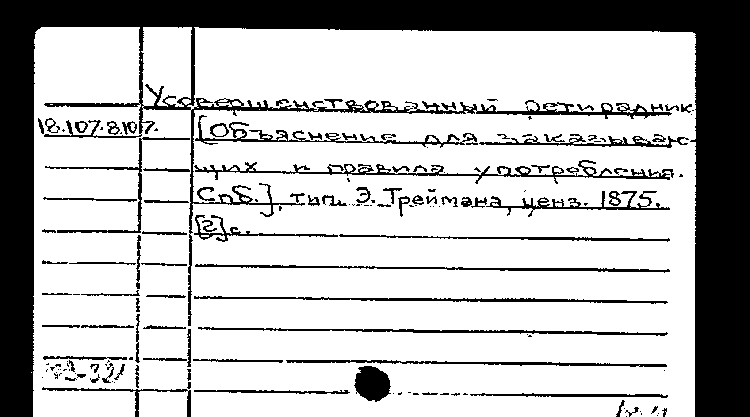 Усовершенствованный ретирадник
18.107.8.107. [Объяснение для заказываю-
щих и правила употребления.
Спб.], тип. Э. Треймана, ценз. 1875.
[2]с.